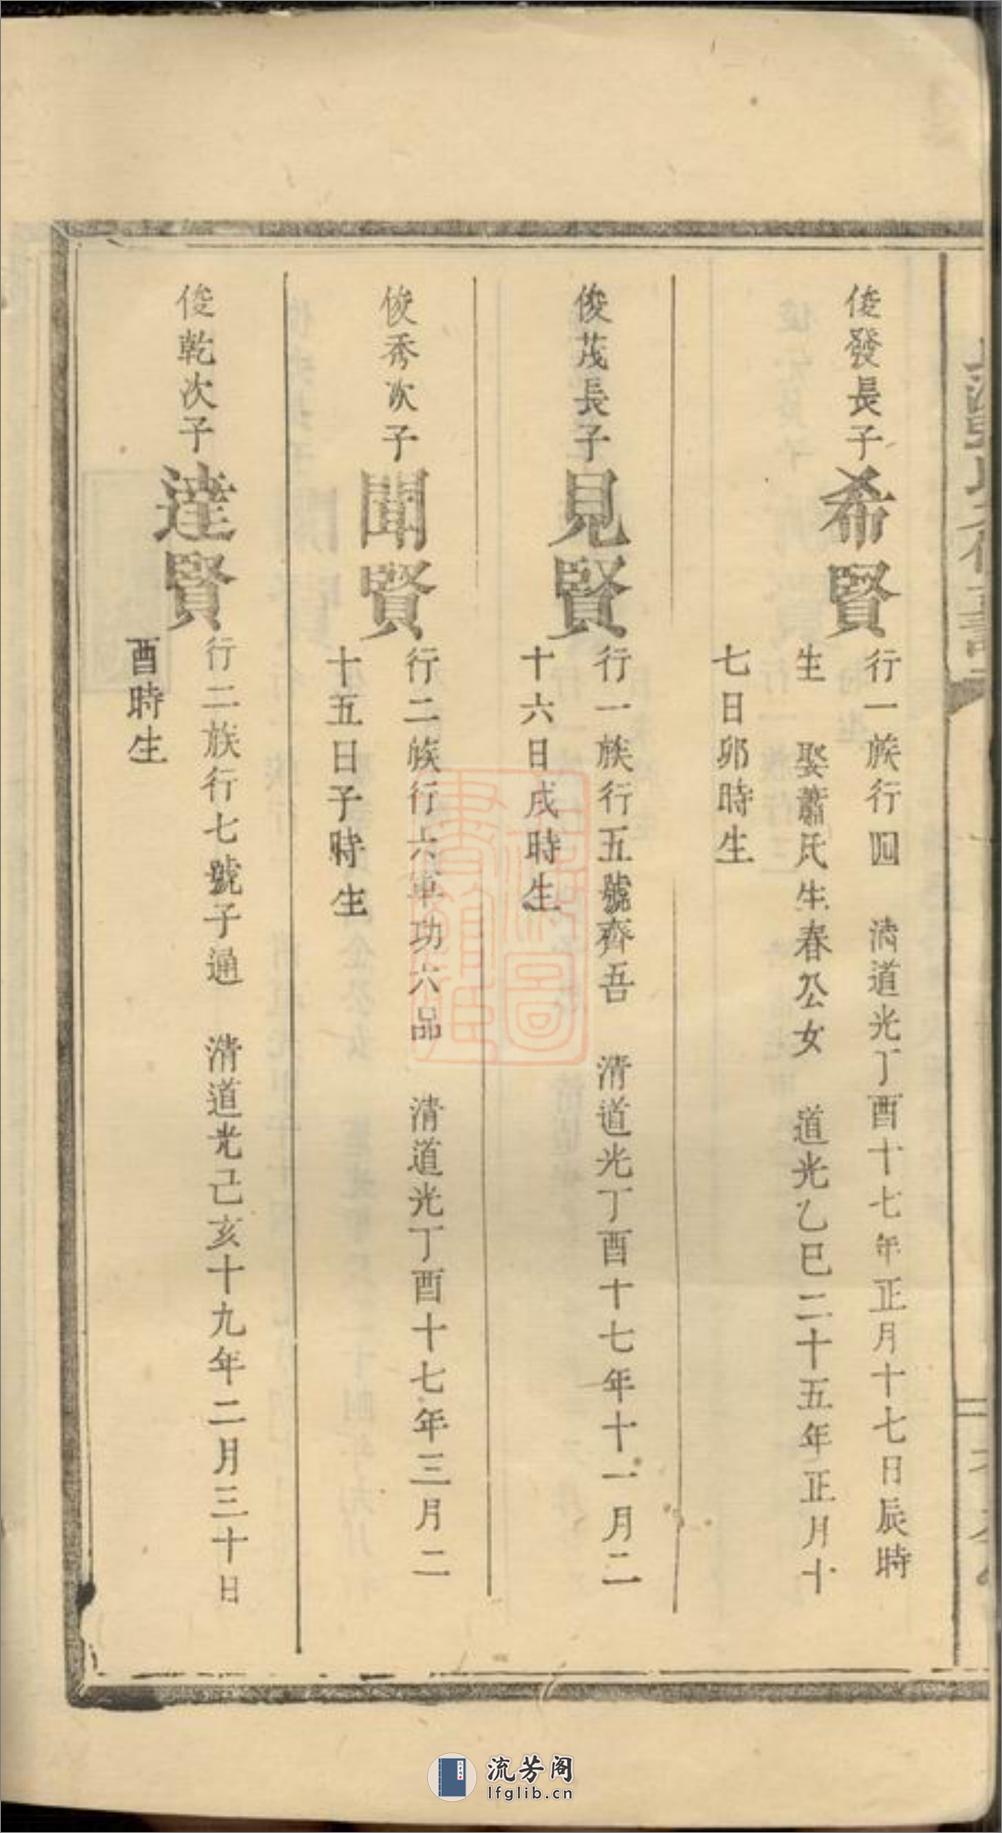 俊發長子
希賢
行一族行四　清道光丁酉十七年正月十七日辰時
生　娶蕭氏生春公女　道光乙巳二十五年正月十
七日卯時生
俊茂長子
見賢
行一族行五號齊吾　清道光丁酉十七年十一月二
十六日戌時生
俊秀次子
聞賢
行二族行六軍功六品　清道光丁酉十七年三月二
十五日子時生
俊乾次子
達賢
行二族行七號子通　清道光己亥十九年二月三十日
酉時生
流芳阁
lfglib.cn